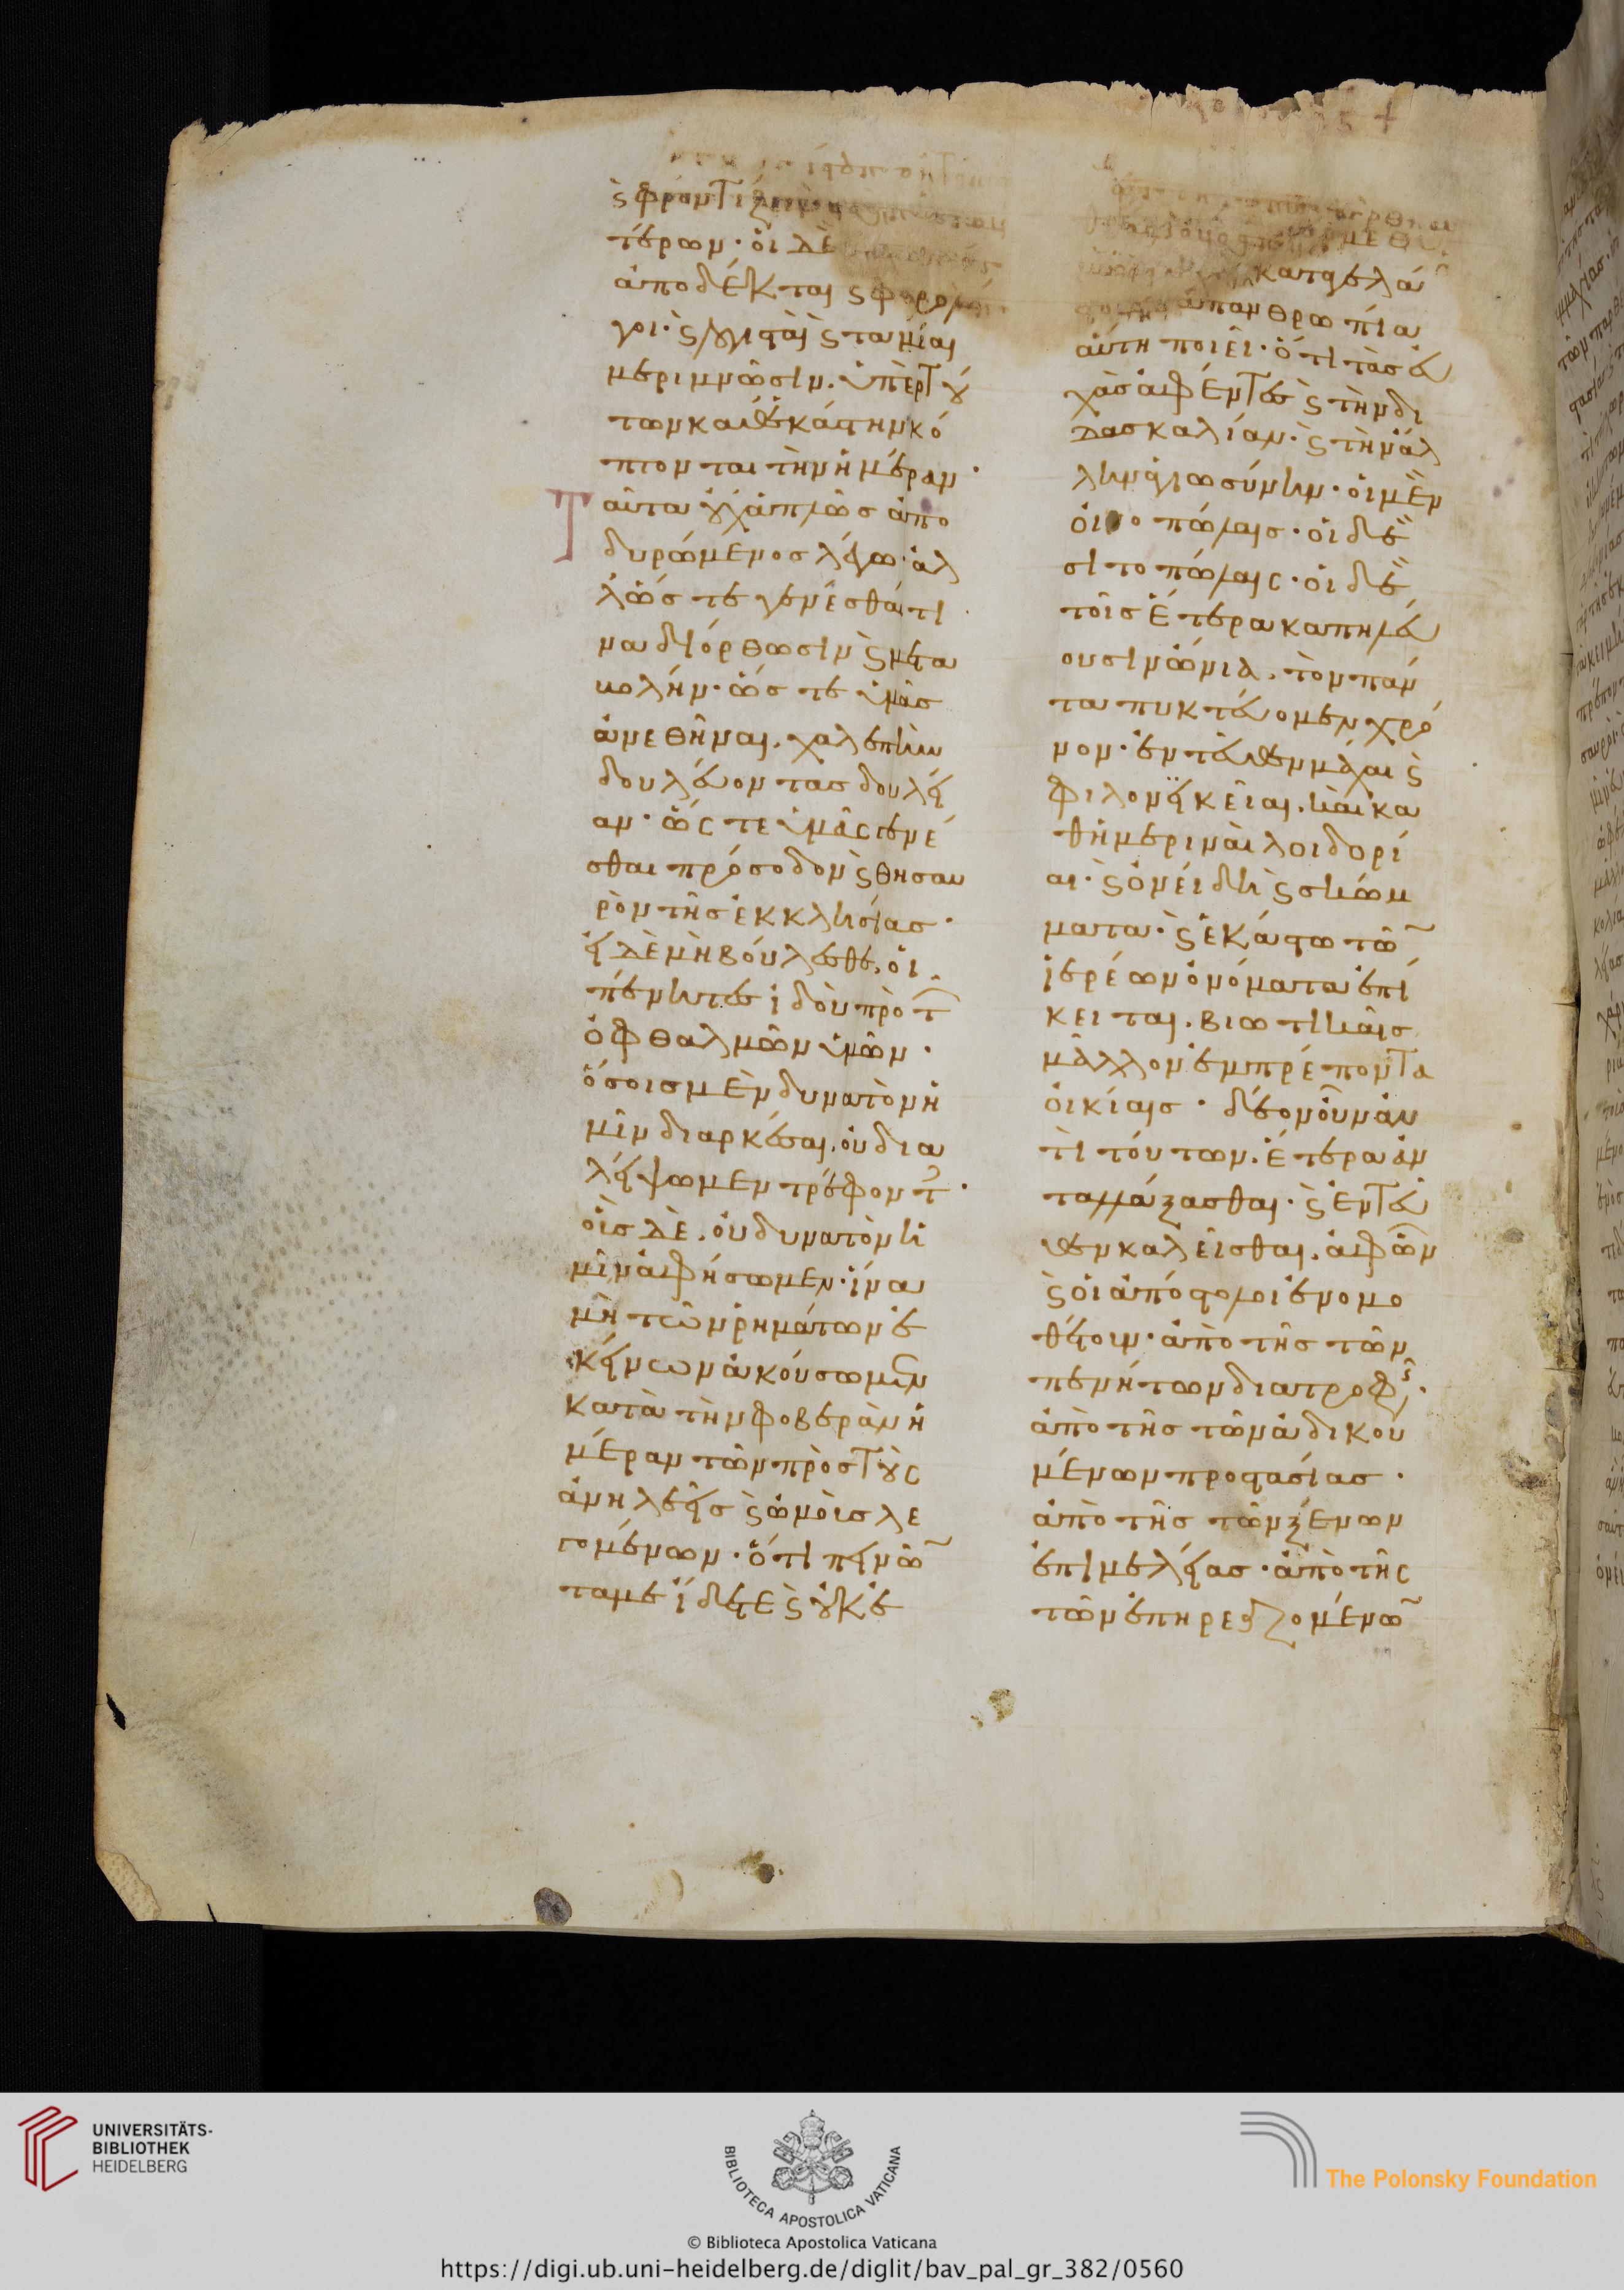 ϛ φροντίζειν
τέρων· οἱ δὲ
ἀποδέκται ϛ φορολό
γοι· ϛ λογισταὶ ϛ ταμίαι
μεριμνῶσιν. ὑπὲρ τού
των καθ' ἑκάστην κό
πτονται τὴν ἡμέραν·
Ταῦτα οὐχ ἁπλῶς ἀπο
δυρώμενος λέγω· ἀλ
λ' ὥς τε γενέσθαι τι
να διόρθωσιν ϛ μετα
βολήν· ὥς τε ὑμᾶς
ἀνεθῆναι. χαλεπὴν
δουλεύοντας δουλεί
αν· ὥς τε ὑμᾶς γενέ
σθαι πρόσοδον ϛ θησαυ
ρὸν τῆς ἐκκλησίας·
εἰ δὲ μὴ βούλεσθε, οἱ
πένητες ἰδοὺ πρὸ τ
ὀφθαλμῶν ὑμῶν·
ὅσοις μὲν δυνατὸν ἡ
μῖν διαρκέσαι, οὐ δια
λείψωμεν τρέφοντ·
οἷς δὲ, οὐ δυνατὸν ἡ
μῖν ἀφήσωμεν· ἵνα
μὴ τῶν ῥημάτων ἐ
κείνων ἀκούσωμεν
κατὰ τὴν φοβερὰν ἡ
μέραν τῶν πρὸς τοὺς
ἀνηλεεῖς ϛ ὠμοὺς λε
γομένων· ὅτι πεινῶ
τα με ἴδετε ϛ οὐκ ἐ
καταγελά
ἀπανθρωπία
αὕτη ποιεῖ· ὅτι τὰς εὐ
χὰς ἀφέντες ϛ τὴν δι
δασκαλίαν· ϛ τὴν ἄλ
λην ἁγιωσύνην· οἱ μὲν
οἰνοπώλαις· οἱ δὲ
σιτοπώλαις· οἱ δὲ
τοῖς ἕτερα καπηλεύ
ουσιν ὤνια. τὸν πάν
τα πυκτεύομεν χρό
νον· ἐντεῦθεν μάχαι ϛ
φιλονεικεῖαι. καὶ κα
θημεριναὶ λοιδορί
αι· ϛ ὀνείδη ϛ σκώμ
ματα· ϛ ἑκάστω τῶ
ἱερέων ὀνόματα ἐπί
κειται. βιωτικαῖς
μᾶλλον ἐμπρέποντα
οἰκίαις· δέον οὖν ἀν
τὶ τούτων. ἕτερα ἀν
ταλλάξασθαι· ϛ ἐντεῦ
θεν καλεῖσθαι. ἀφ' ὧν
ϛ οἱ ἀπόστολοι ἐνομο
θέτουν· ἀπὸ τῆς τῶν
πενήτων διατροφῆς·
ἀπὸ τῆς τῶν ἀδικου
μένων προστασίας·
ἀπὸ τῆς τῶν ξένων
ἐπιμελείας· ἀπὸ τῆς
τῶν ἐπηρεαζομένω
UNIVERSITÄTS-
BIBLIOTHEK
HEIDELBERG
BIBLIOTECA APOSTOLICA VATICANA
The Polonsky Foundation
© Biblioteca Apostolica Vaticana
https://digi.ub.uni-heidelberg.de/diglit/bav_pal_gr_382/0560